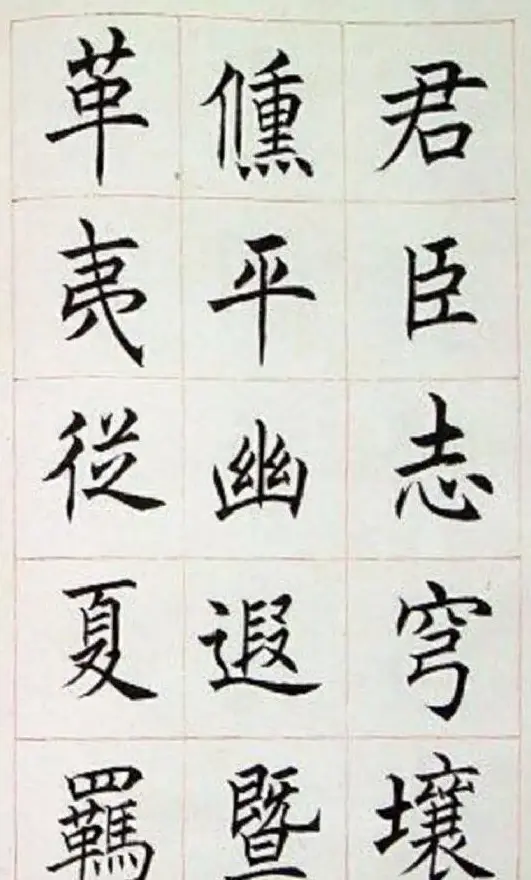 君臣志穹壤
平幽遐暨
革夷従夏羈